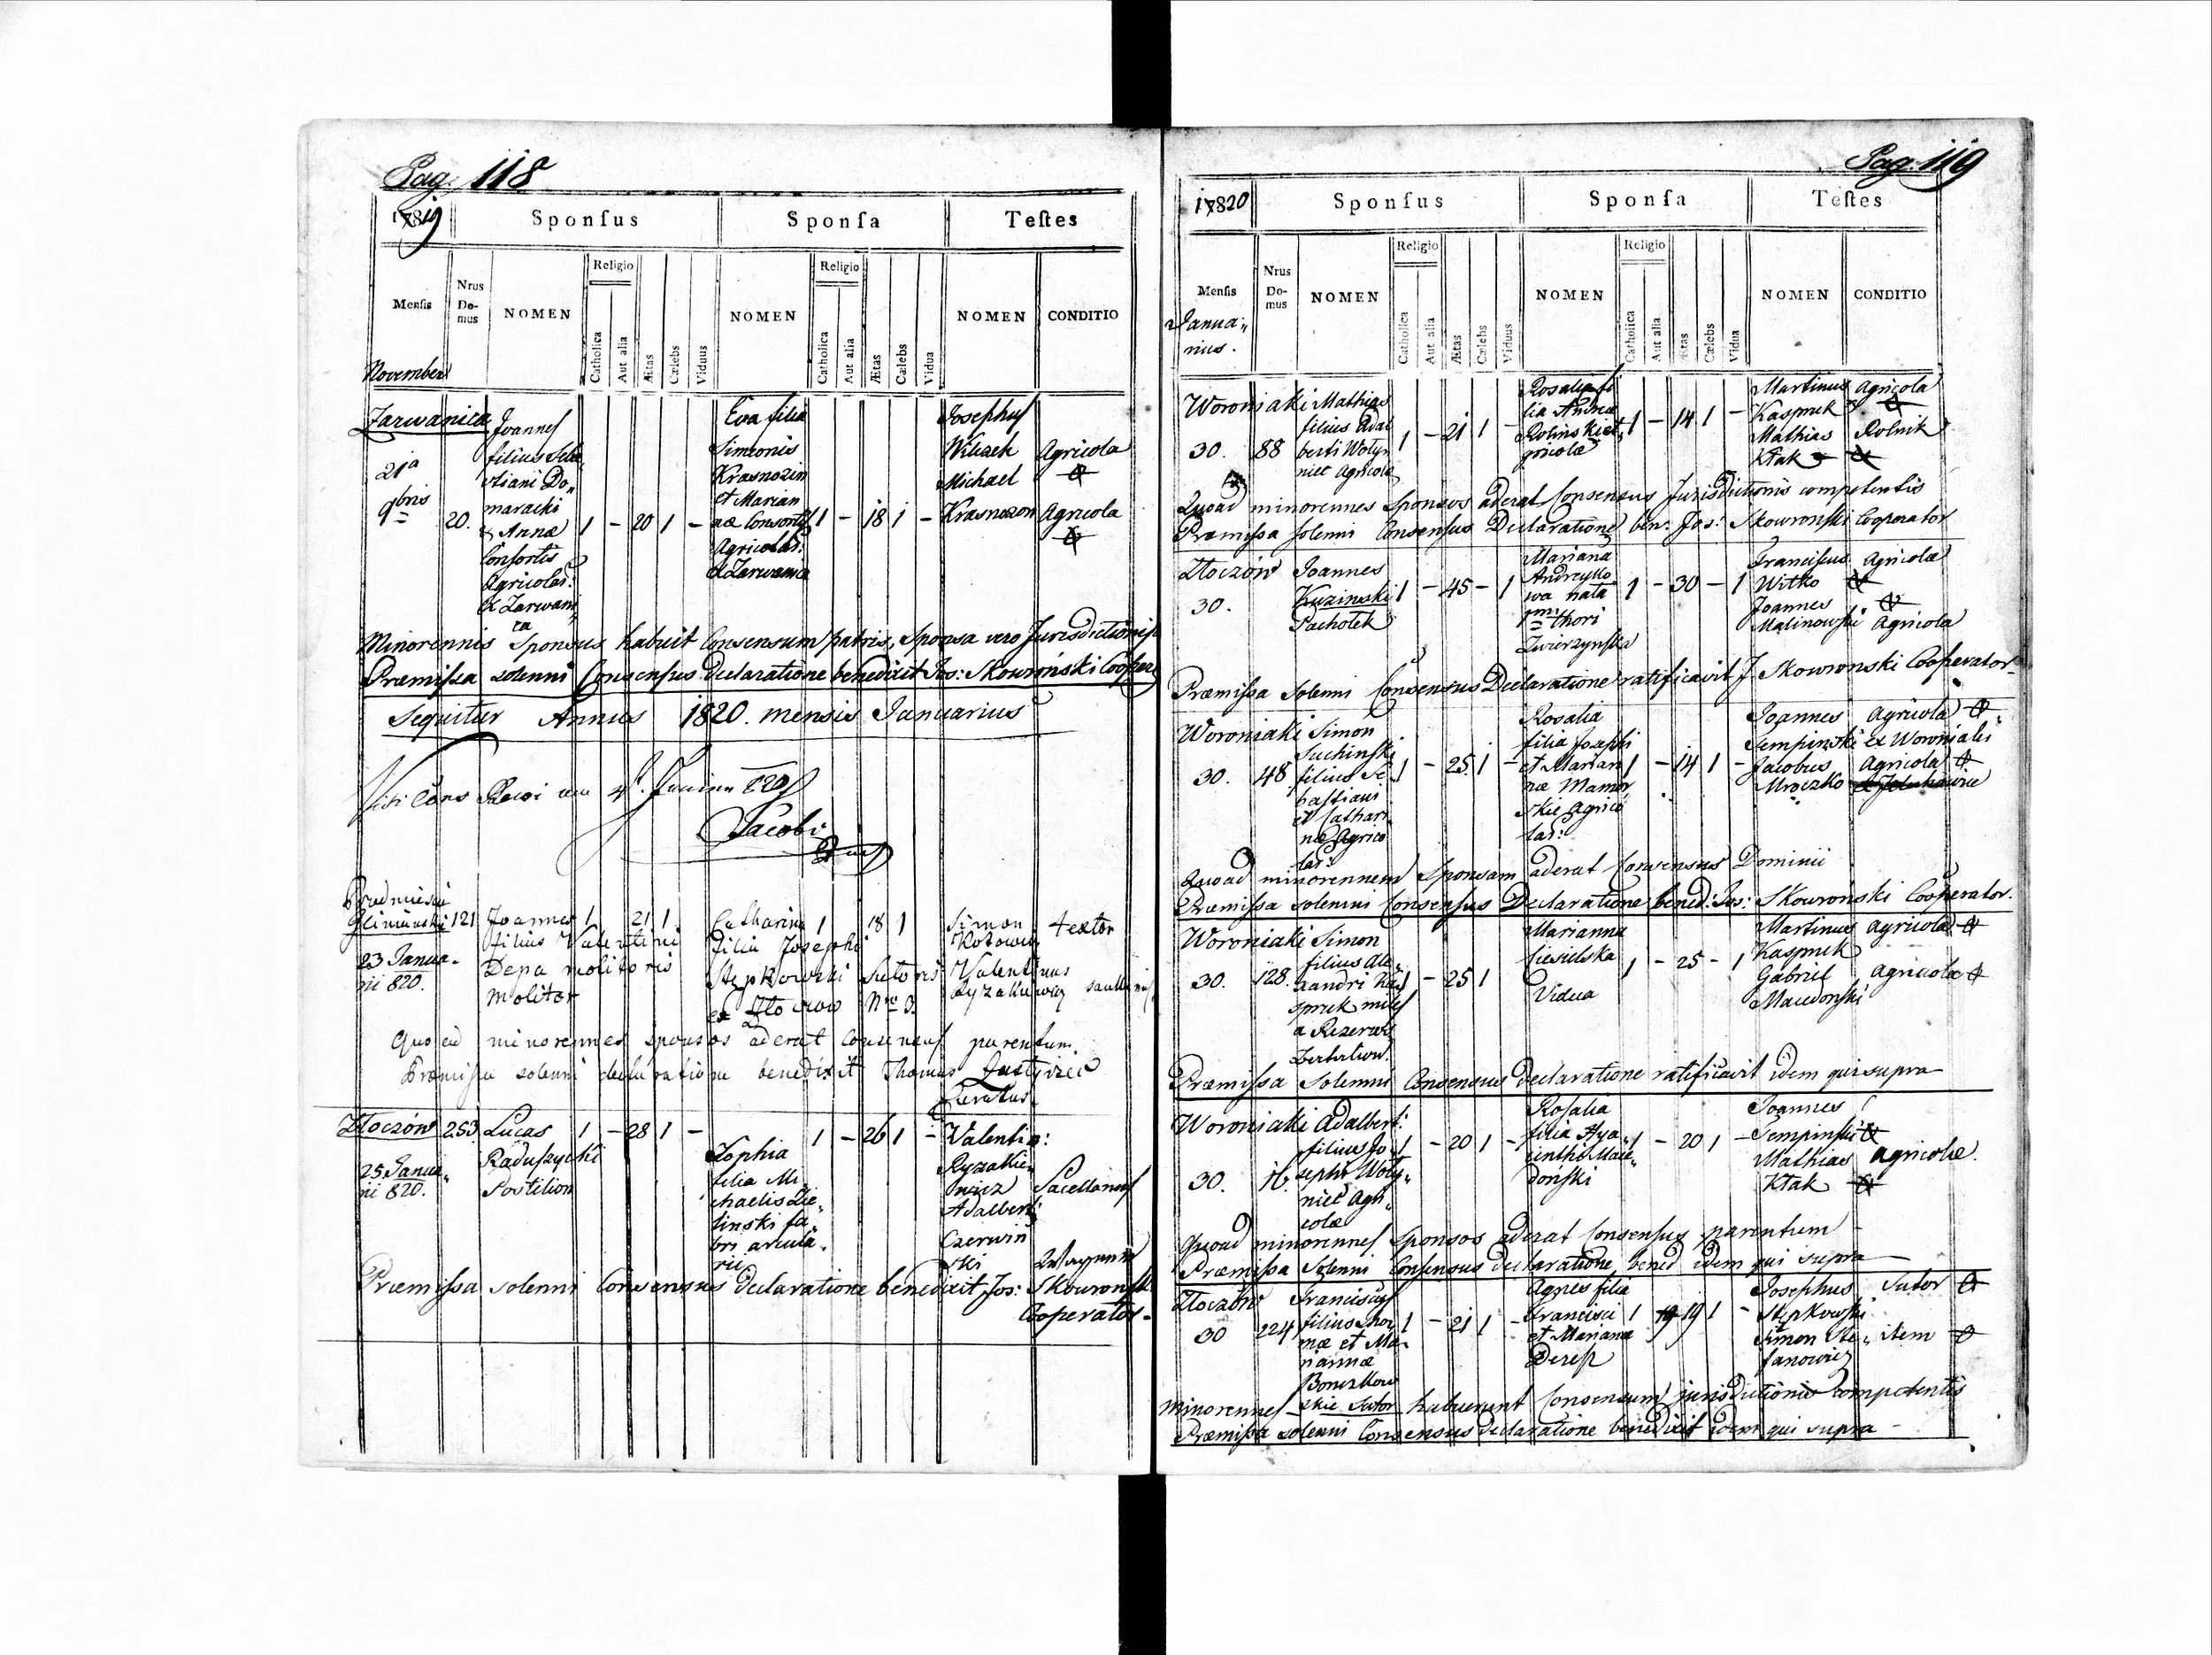 Pag. 118
1819
Sponsus Sponsa Testes
Mensis
Nrus Domus
NOMEN
Religio
Catholica
Aut alia
Ætas
Cælebs
Viduus
NOMEN
Religio
Catholica
Aut alia
Ætas
Cælebs
Vidua
NOMEN
CONDITIO
November
Zarwanica
21a
9bris
20.
Joannes
filius Seba
stiani Do„
maracki
& Annæ
Consortis
Agricolar:
ex Zarwani
ca
1 – 20 1 –
Eva filia
Simeonis
Krasnozon
et Marian
næ Consortis
Agricolar:
ex Zarwanica
1 – 18 1 –
Josephus
Michael
Krasnozon
Agricola
Agricola
Minorennis Sponsus habuit Consensum patris, Sponsa vero Jurisdictionis
Præmissa solenni Consensus Declaratione benedixit Jos: Skowroński Cooper
Sequitur Annus 1820. mensis Januarius
Jacobi
Glinianski 121
23 Janua-
rii 820.
Joannes
filius Valentini
Depa molitoris
molitor
1 21 1
Catharina
filia Josephi
Stępkowski sutoris
ex Złoczow Nro 3.
1 18 1
Simon
Valentinus
textor
Quoad minorennes sponsos aderat Consensus parentum
Præmissa solenni declaratione benedixit Thomas
Curatus
Złoczów 253
25 Janua„
rii 820.
Lucas
Raduszycki
Postilion
1 – 28 1 –
Zophia
filia Mi„
chaelis Zie„
linski fa„
bri arcula„
rii
1 – 26 1 –
Valentin:
Ryzakie„
wicz
Adalbert:
Czerwiń
ski
Sacellanus
Præmissa solenni Consensus declaratione benedixit Jos: Skowronski
Cooperator-
Pag. 119
1820
Sponsus Sponsa Testes
Mensis
Nrus Domus
NOMEN
Religio
Catholica
Aut alia
Ætas
Cælebs
Viduus
NOMEN
Religio
Catholica
Aut alia
Ætas
Cælebs
Vidua
NOMEN
CONDITIO
Janua„
rius.
Woroniaki
30. 88
Mathias
filius Adal
berti Woły„
niec Agricolæ
1 – 21 1 –
Rosalia fi
lia Andreæ
Rolinski
1 – 14 1 –
Martinus
Kaspruk
Mathias
Kłak
Agricola
Rolnik
Quoad minorennes Sponsos aderat Consensus Jurisdictionis competentis
Præmissa solenni Consensus Declaratione ben: Jos: Skowronski Cooperator
Złoczow
30.
Joannes
Kuzinski
Pachołek
1 – 45 – 1
Mariana
Andreyko
wa nata
1mi thori
Zwierzynska
1 – 30 – 1
Franciscus
Witko
Joannes
Malinowski
Agricola
Agricola
Præmissa Solenni Consensus Declaratione ratificavit J. Skowronski Cooperator
Woroniaki
30. 48
Simon
Suchinski
filius Se
bastiani
et Cathari
næ Agrico
lar:
1 – 25 1 –
Rosalia
filia Josephi
et Marian
næ Mamor
skie Agrico
lar:
1 – 14 1 –
Joannes
Sempinski
Jacobus
Mroczko
Agricola
ex Woroniaki
Agricola
Quoad minorennem Sponsam aderat Consensus Dominii
Præmissa solenni Consensus Declaratione bened: Jos: Skowronski Cooperator.
Woroniaki
30. 128
Simon
filius Ale„
xandri Ka
spruk miles
a Rezerwy
1 – 25 1
Marianna
Ciesielska
Vidua
1 – 25 – 1
Martinus
Kaspruk
Gabriel
Macedonski
agricola
agricola
Præmissa Solenni Consensus Declaratione ratificavit idem qui supra
Woroniaki
30. 16.
Adalbert:
filius Jo
sephi Woły„
niec Agri„
colæ
1 – 20 1 –
Rosalia
filia Hya„
cinthi Mace„
doński
1 – 20 1 –
Joannes
Sempinski
Mathias
Kłak
agricolæ.
Quoad minorennes Sponsos aderat Consensus parentum
Præmissa Solenni Consensus declaratione bened idem qui supra
Złoczow
30 224
Franciscus
filius Tho„
mæ et Ma„
riannæ
skie Sutor
1 – 21 1 –
Agnes filia
Francisci
et Mariana
Deresz
1 19 1 –
Josephus
Stępkowski
Simon Ste„
fanowicz
Sutor
item
Minorennes habuerunt Consensum jurisdictionis competentis
Præmissa solenni Consensus declaratione benedixit idem qui supra –